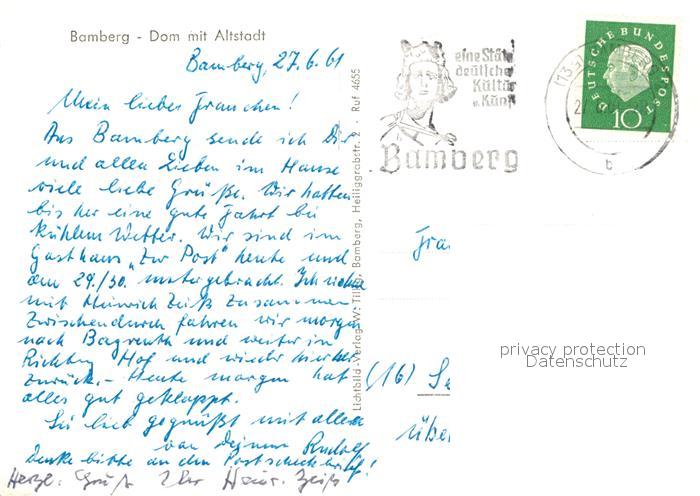 Bamberg - Dom mit Altstadt
Bamberg, 27.6.61
Mein liebes Frauchen!
Aus Bamberg sende ich Dir
und allen Lieben im Hause
viele liebe Grüße. Wir hatten
bis her eine gute Fahrt bei
kühlem Wetter. Wir sind im
Gasthaus „Zur Post" heute und
am 29./30. untergebracht. Ich
mit Heinrich Zeiß zusammen
Zwischendurch fahren wir morgen
nach Bayreuth und weiter in
Richtng Hof und wieder hierher
zurück.- Heute morgen hat
alles gut geklappt.
Sei lieb gegrüßt mit allen
von Deinem Rudolf
Denke bitte an den Postscheckbrief!
Herzl. Gruß Ihr Heinr. Zeiß
Lichtbild-Verlag W. Bamberg, Heiliggrabstr. 2 · Ruf 4655
eine Stätte
deutscher
Kultur
u. Kunst
Bamberg
DEUTSCHE BUNDESPOST
10
b
(16)
privacy protection
Datenschutz